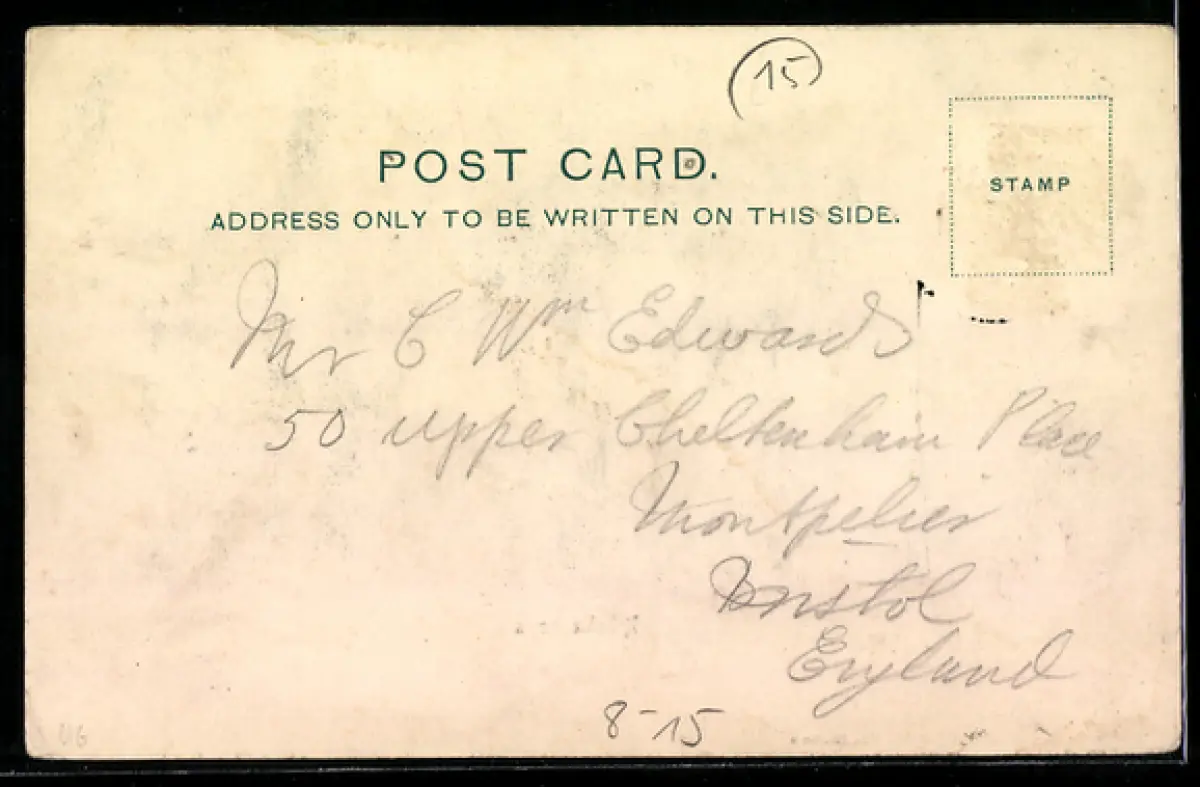 15
POST CARD.
STAMP
ADDRESS ONLY TO BE WRITTEN ON THIS SIDE.
Mr C Wm Edwards
50 upper Cheltenham Place
Montpelier
Bristol
England
8-15